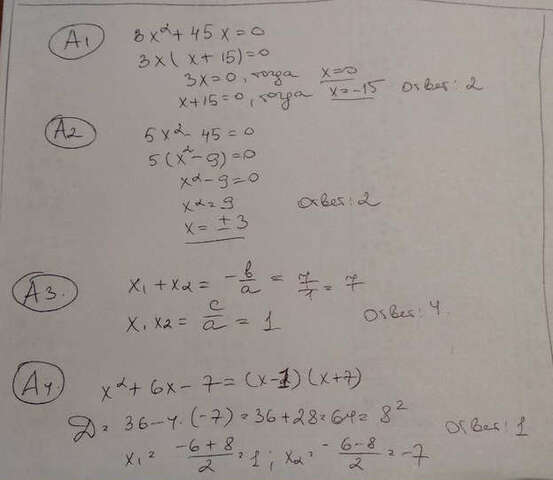 A1 3x²+45x=0
3x(x+15)=0
3x=0, тогда x=0
x+15=0, тогда x=-15 Ответ: 2
A2 5x²-45=0
5(x²-9)=0
x²-9=0
x²=9 Ответ: 2
x=±3
A3. x₁+x₂= -b/a = 7/1 = 7
x₁x₂= c/a = 1 Ответ: 4.
A4. x²+6x-7=(x-1)(x+7)
D= 36-4·(-7)=36+28=64=8² Ответ: 1
x₁= (-6+8)/2=1; x₂= (-6-8)/2=-7